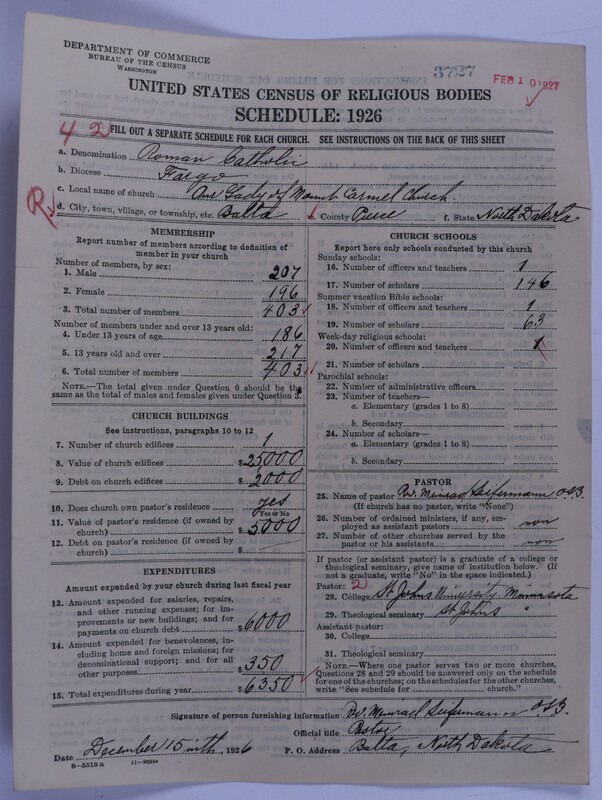 DEPARTMENT OF COMMERCE
BUREAU OF THE CENSUS
WASHINGTON
3727
FEB 10 1927
UNITED STATES CENSUS OF RELIGIOUS BODIES
SCHEDULE: 1926
42
FILL OUT A SEPARATE SCHEDULE FOR EACH CHURCH. SEE INSTRUCTIONS ON THE BACK OF THIS SHEET
a. Denomination Roman Catholic
b. Diocese Fargo
c. Local name of church Our Lady of Mount Carmel Church.
R
d. City, town, village, or township, etc. Balta County Pierce f. State North Dakota
MEMBERSHIP
Report number of members according to definition of
member in your church
Number of members, by sex:
1. Male 207
2. Female 196
3. Total number of members 403
Number of members under and over 13 years old:
4. Under 13 years of age 186
5. 13 years old and over 217
6. Total number of members 403
NOTE.—The total given under Question 6 should be the
same as the total of males and females given under Question 3.
CHURCH BUILDINGS
See instructions, paragraphs 10 to 12
7. Number of church edifices 1
8. Value of church edifices $25000
9. Debt on church edifices $2000
10. Does church own pastor's residence yes
Yes or No
11. Value of pastor's residence (if owned by
church) $5000
12. Debt on pastor's residence (if owned by
church) $
EXPENDITURES
Amount expended by your church during last fiscal year
13. Amount expended for salaries, repairs,
and other running expenses; for im-
provements or new buildings; and for
payments on church debt $6000
14. Amount expended for benevolences, in-
cluding home and foreign missions; for
denominational support; and for all
other purposes $350
15. Total expenditures during year $6350
CHURCH SCHOOLS
Report here only schools conducted by this church
Sunday schools:
16. Number of officers and teachers 1
17. Number of scholars 146
Summer vacation Bible schools:
18. Number of officers and teachers 1
19. Number of scholars 63
Week-day religious schools:
20. Number of officers and teachers 1
21. Number of scholars
Parochial schools:
22. Number of administrative officers
23. Number of teachers—
a. Elementary (grades 1 to 8)
b. Secondary
24. Number of scholars—
a. Elementary (grades 1 to 8)
b. Secondary
PASTOR
25. Name of pastor Rev. Meinrad Seifermann O.S.B.
(If church has no pastor, write "None")
26. Number of ordained ministers, if any, em-
ployed as assistant pastors non
27. Number of other churches served by the
pastor or his assistants non
If pastor (or assistant pastor) is a graduate of a college or
theological seminary, give name of institution below. (If
not a graduate, write "No" in the space indicated.)
Pastor: 2
28. College St Johns University Minnesota
29. Theological seminary St Johns "
Assistant pastor:
30. College
31. Theological seminary
NOTE.—Where one pastor serves two or more churches,
Questions 28 and 29 should be answered only on the schedule
for one of the churches; on the schedules for the other churches,
write "See schedule for church."
Signature of person furnishing information Rev. Meinrad Seifermann O.S.B.
Official title Pastor
Date December 15 1926 P. O. Address Balta, North Dakota
8—5518a 11—9024a